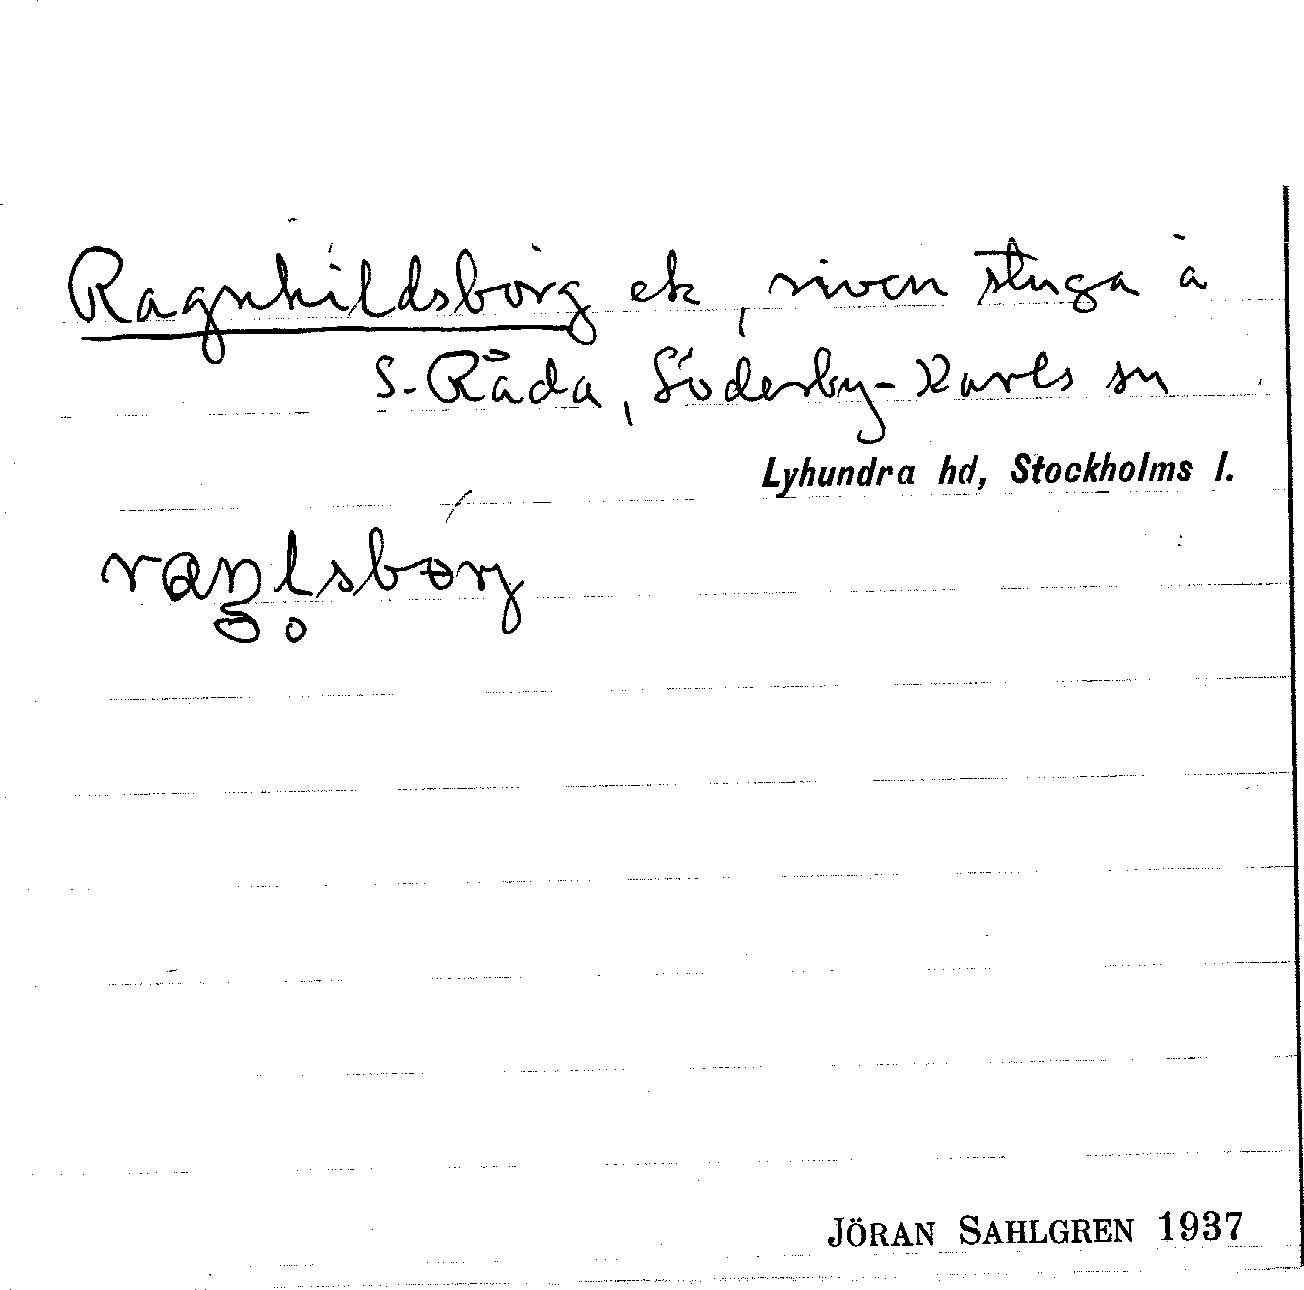 Ragnhildsborg ek, riven stuga å
S. Råda, Söderby-Karls sn
Lyhundra hd, Stockholms l.
JÖRAN SAHLGREN 1937